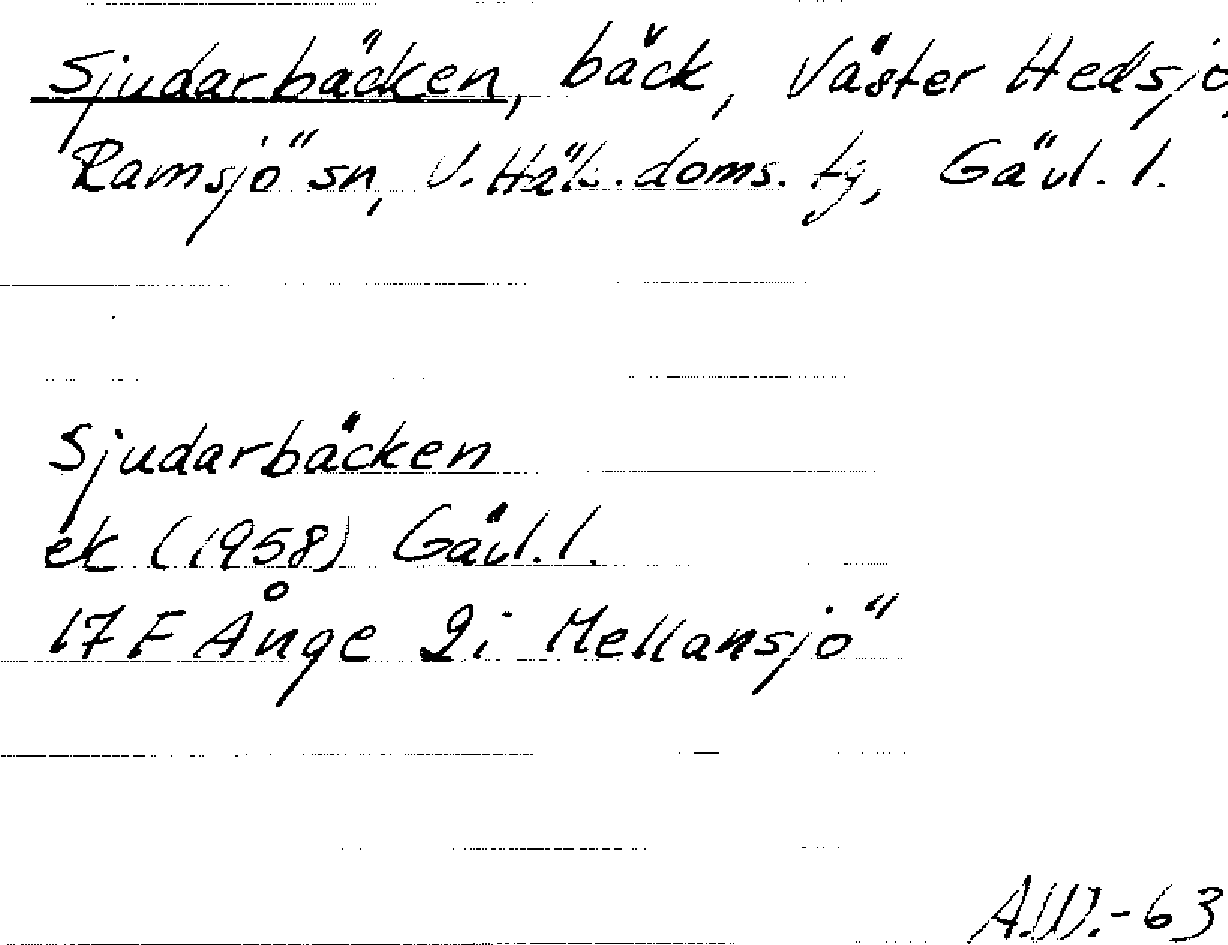 Sjudarbäcken, bäck, Väster Hedsjö,
Ramsjö sn, V. Häls. doms. tg, Gävl. l.
Sjudarbäcken
ek (1958) Gävl. l.
17 F Ånge 2i Mellansjö
-63